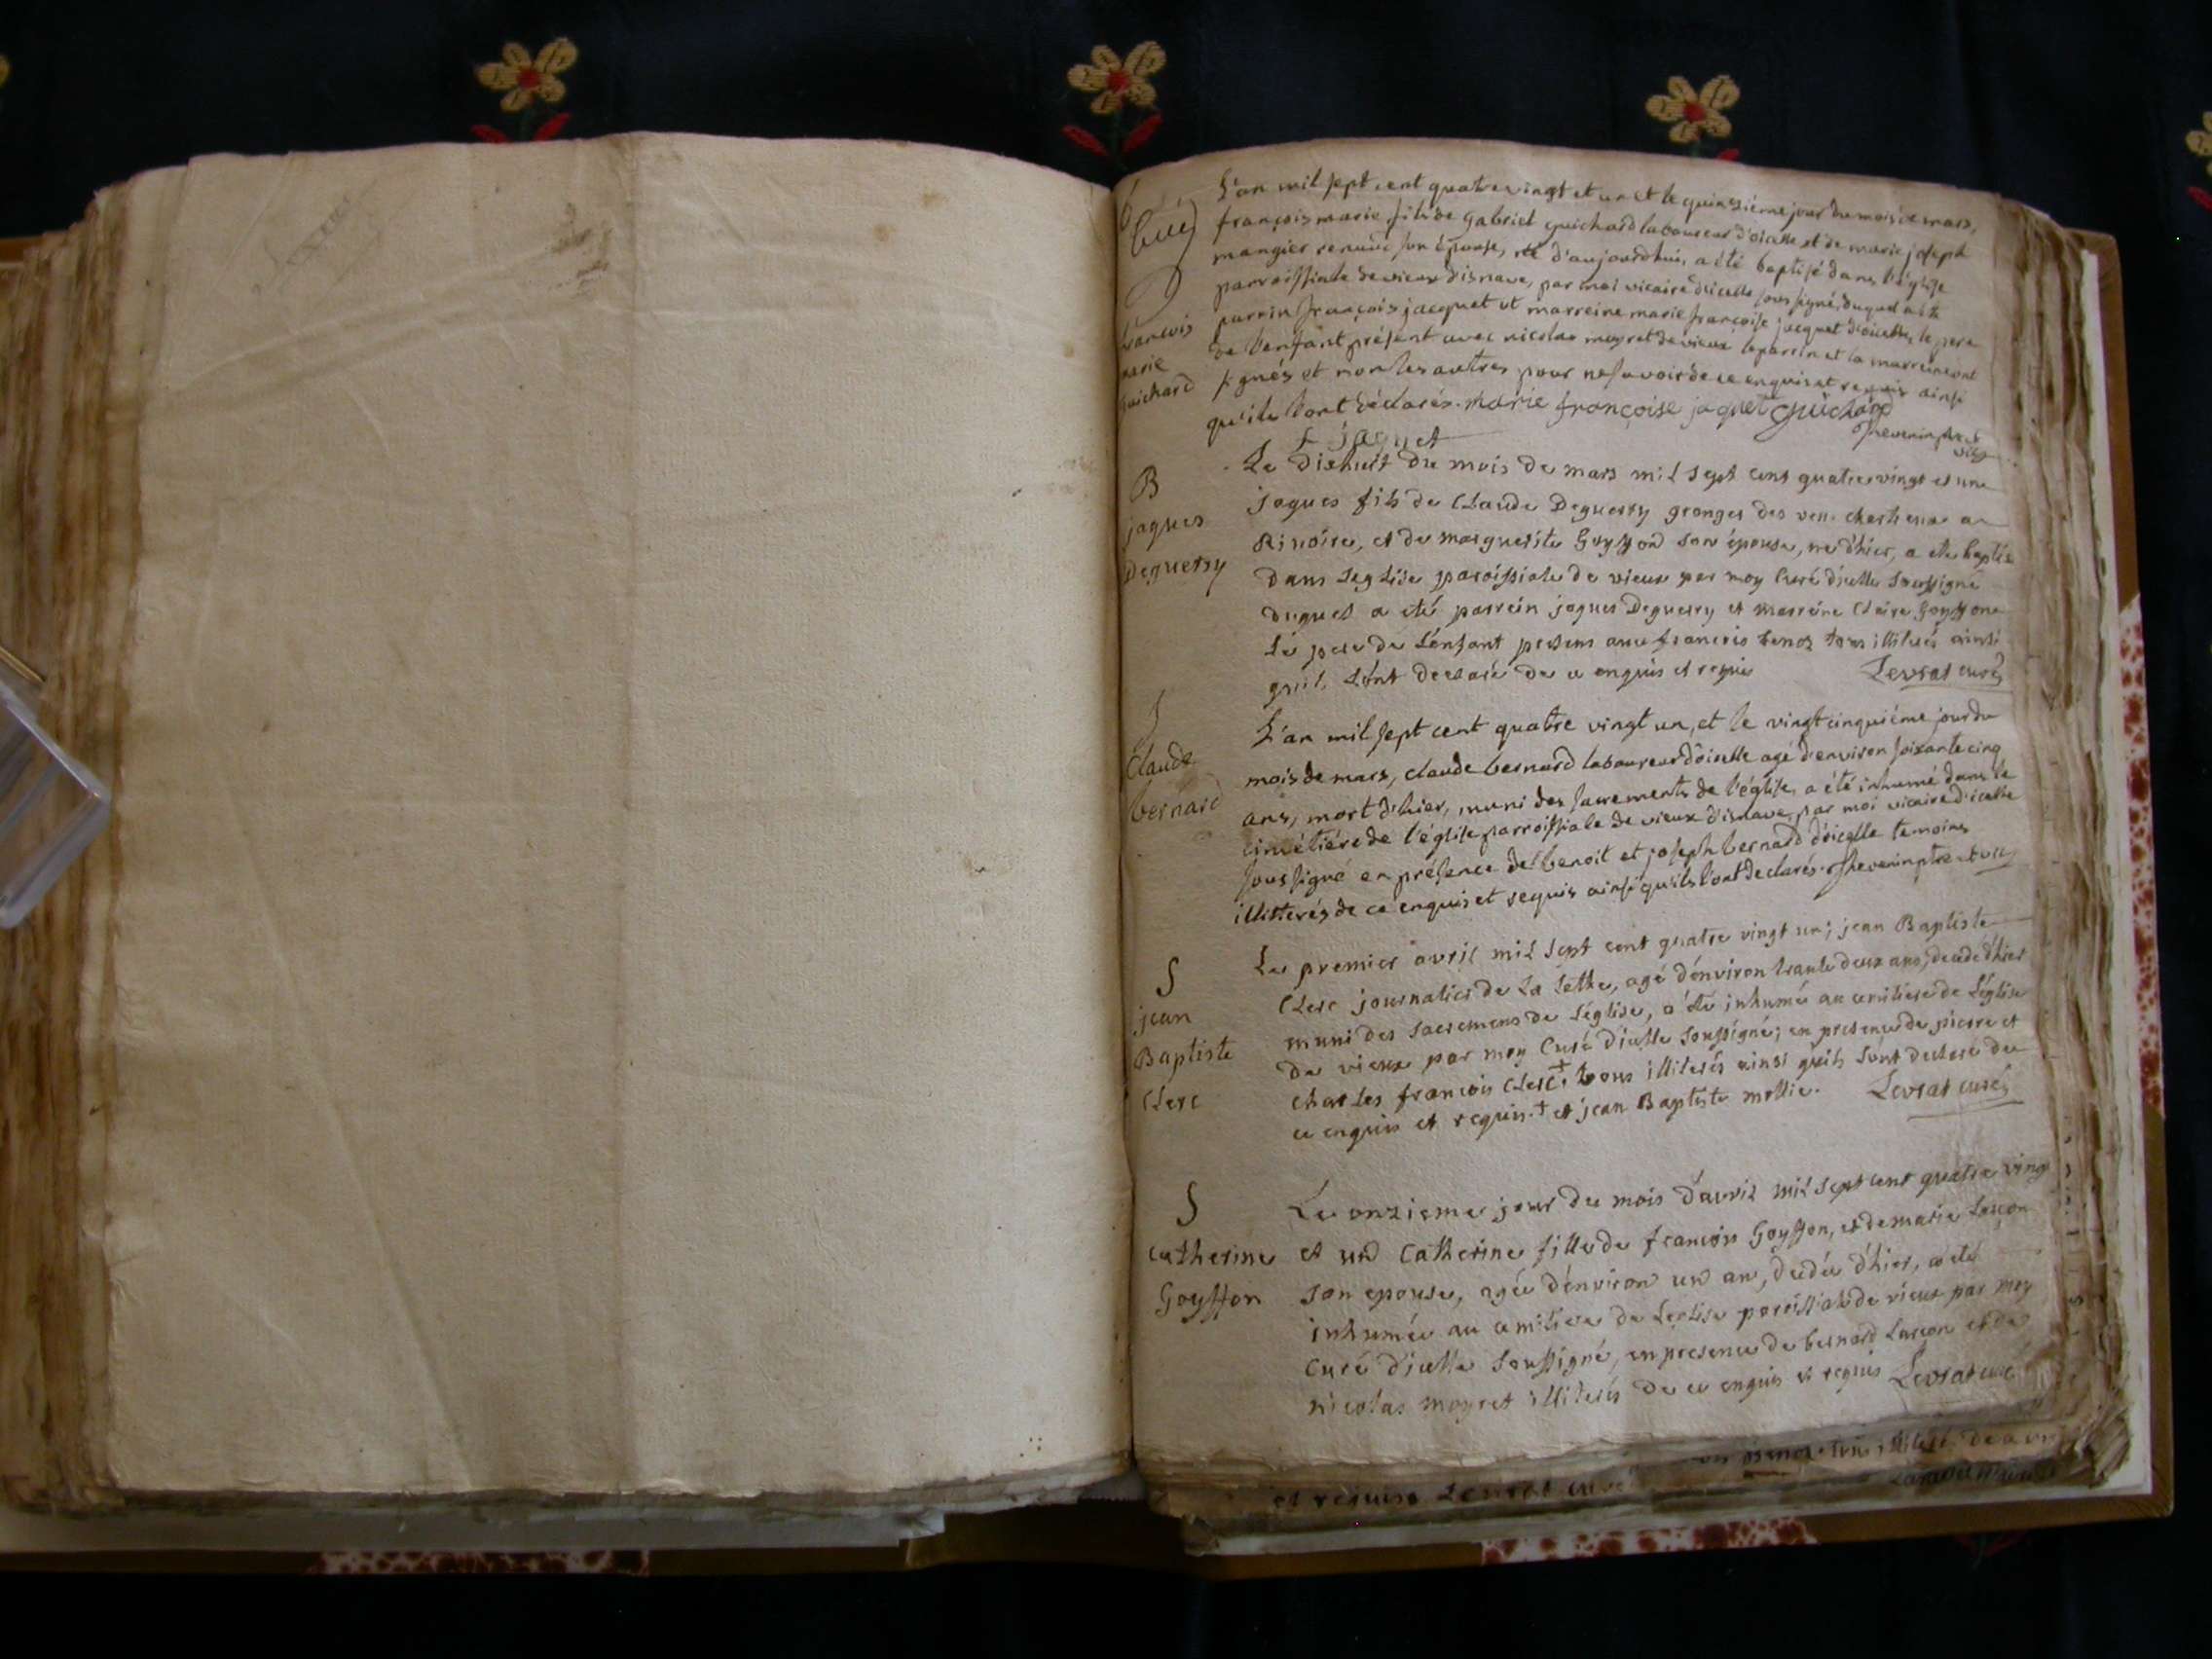 L'an mil sept cent quatrevingt et un et le quinziéme jour du mois de mars,
françois marie fils de gabriel guichard laboureur d'oicelle et de marie joseph
mangier son épouse, né d'aujourdhui, a été baptisé dans l'église
parroissiale de vieux d'isnave, par moi vicaire d'icelle soussigné, duquel a été
parrin françois jacquet et marreine marie françoise jacquet d'oicelle, le pere
de l'enfant présent avec nicolas moyret de vieux le parrin et la marreine ont
signés et non les autres pour ne savoir de ce enquis et requis ainsi
qu'ils l'ont déclarés. marie françoise jaquet guichard
f jaquet
françois
marie
guichard
B
jaques
Deguerry
Le dixhuit du mois de mars mil sept cent quatrevingt et une
jaques fils de Claude Deguerry granger des ven. chartreux a
Rinoire, et de marguerite Goyffon son épouse, ne d'hier, a ete baptisé
dans leglise paroissiale de vieux par moy Curé d'icelle Soussigné
duquel a eté parrein jaques Deguerry et marreine Claire Goyffone
Le pere de L'enfant present avec francois benoz tous illiterés ainsi
qu'il L'ont declaré de ce enquis et requis Levrat curé
S
Claude
bernard
L'an mil sept cent quatre vingt un, et le vingt cinquiéme jour du
mois de mars, claude bernard laboureur d'oicelle agé d'environ soixante cinq
ans, mort d'hier, muni des sacrements de l'église, a été inhumé dans le
cimétiére de l'église parroissiale de vieux d'isnave, par moi vicaire d'icelle
soussigné en présence de benoit et joseph bernard d'oicelle temoins
illitterés de ce enquis et requis ainsi qu'ils l'ont declarés. Thevenin ptre et vic
S
jean
Baptiste
Clerc
Le premier avril mil sept cent quatre vingt un; jean Baptiste
Clerc journalier de La Lethe, agé d'environ trante deux ans, decede d'hier
muni des Sacremens de L'église, a été inhumé au cemitiere de L'église
de vieux par moy Curé d'icelle Soussigné; en presence de pierre et
charles francois Clerc + tous illiterés ainsi qu'ils L'ont declaré de
ce enquis et requis. + et jean Baptiste mollie. Levrat curé
S
catherine
Goyffon
Le onzieme jour du mois d'avril mil sept cent quatre ving
et un Catherine fille de francois Goyffon, et de marie Lançon
son epouse, agée d'environ un an, dedée d'hier, a eté
inhumée au cemitiere de Leglise paroissiale de vieux par moy
Curé d'icelle Soussigné, en presence de bernard Lançon et de
nicolas moyret illiterés de ce enquis et requis Levrat curé
et requis Levrat curé